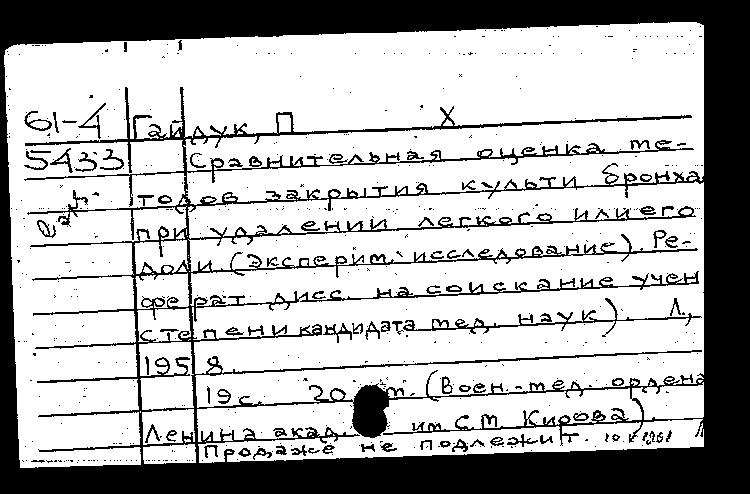 61-4 Гайдук, П Х
5433 Сравнительная оценка ме-
тодов закрытия культи бронха
при удалении легкого или его
доли. (Эксперим. исследование). Ре-
ферат дисс. на соискание учен
степени кандидата мед. наук). Л,
1958.
19 с. 20 (Воен.-мед. ордена
Ленина акад. им С.М Кирова).
Продаже не подлежит.